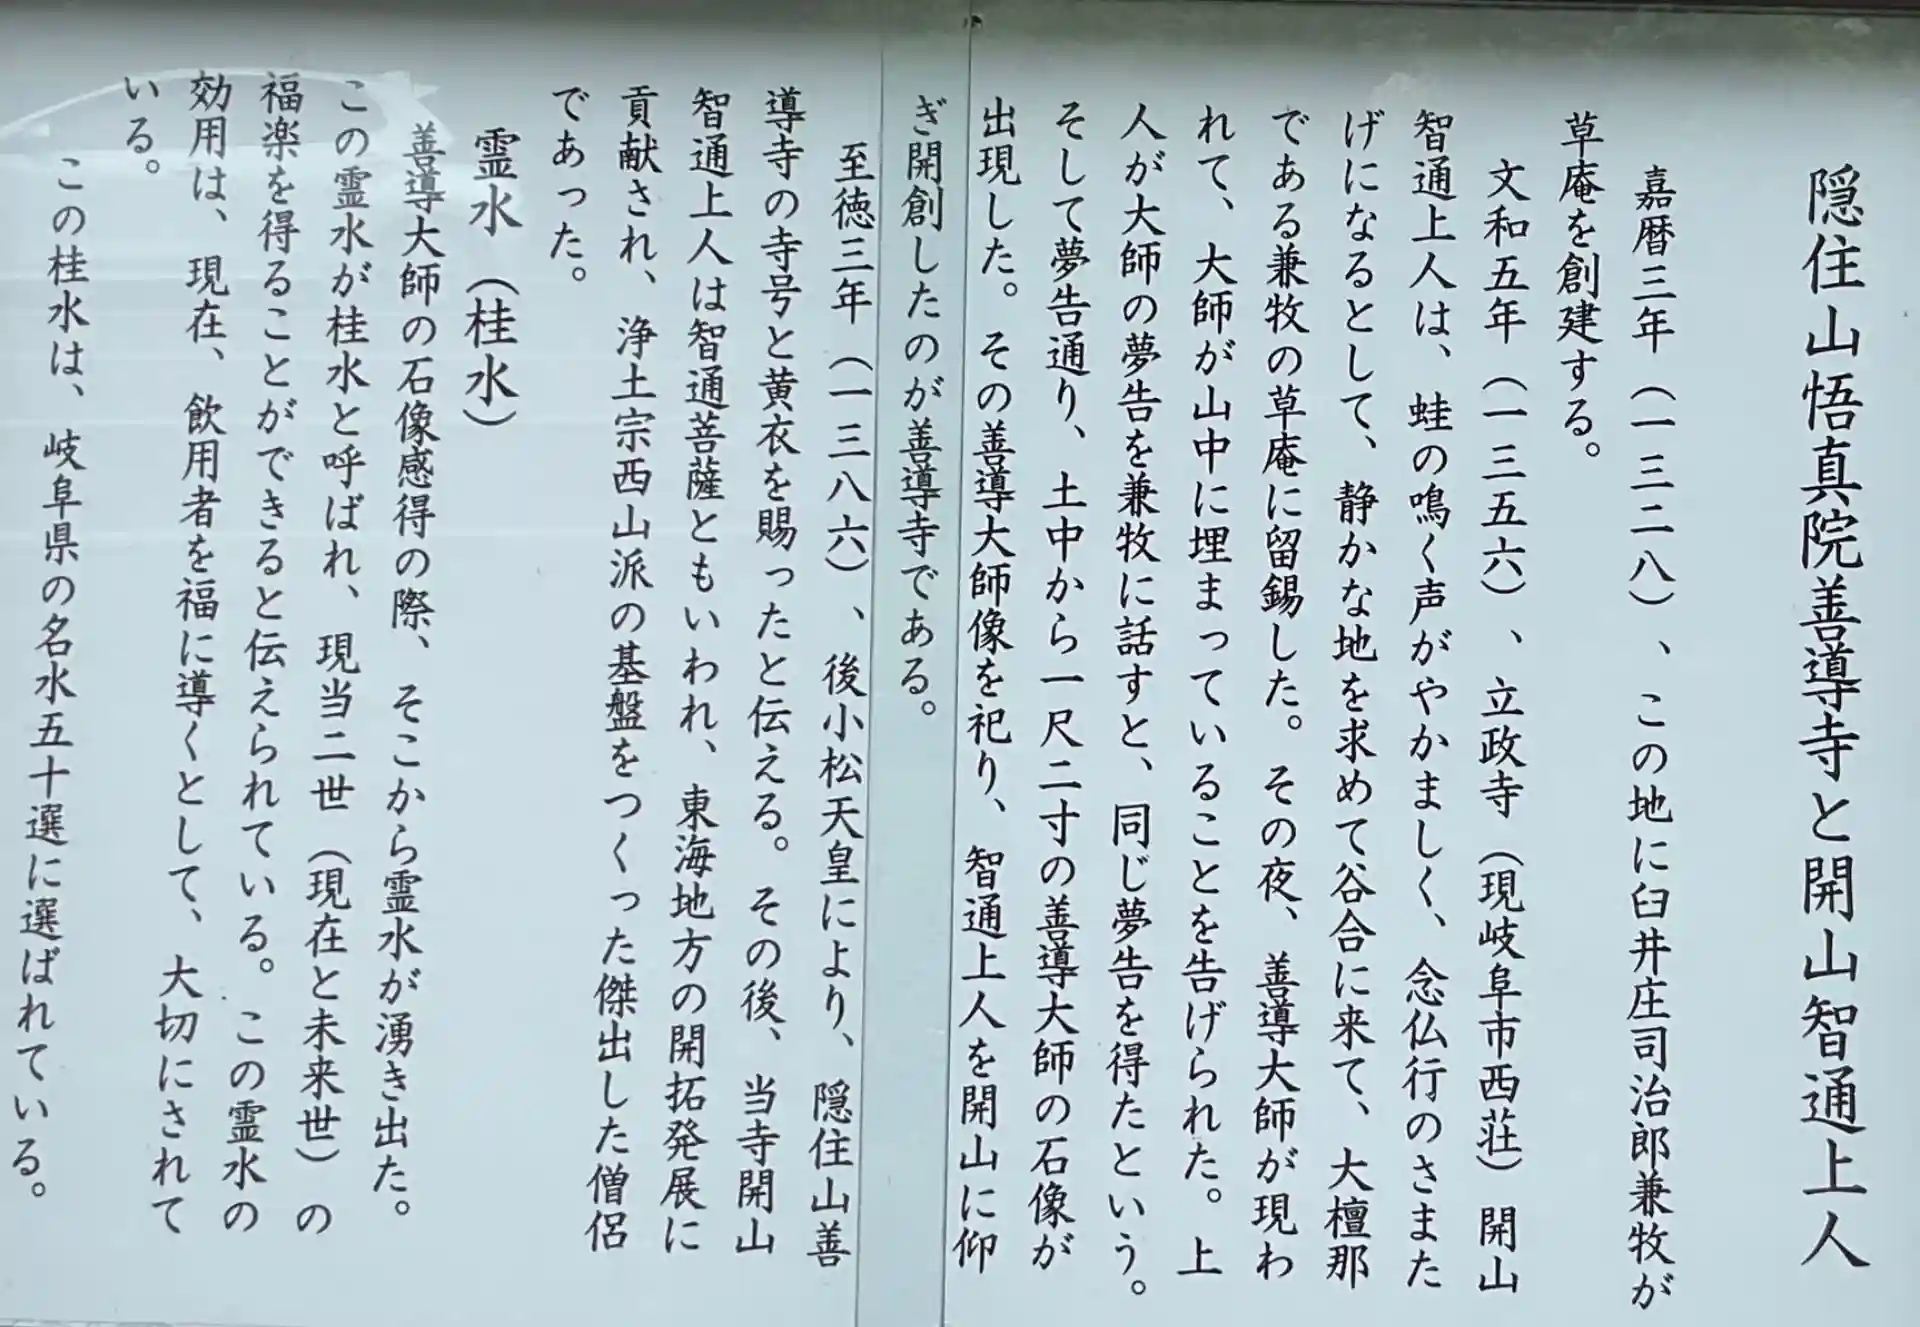 隠住山悟真院善導寺と開山智通上人
嘉暦三年（一三二八）、この地に臼井庄司治郎兼牧が
草庵を創建する。
文和五年（一三五六）、立政寺（現岐阜市西荘）開山
智通上人は、蛙の鳴く声がやかましく、念仏行のさまた
げになるとして、静かな地を求めて谷合に来て、大檀那
である兼牧の草庵に留錫した。その夜、善導大師が現わ
れて、大師が山中に埋まっていることを告げられた。上
人が大師の夢告を兼牧に話すと、同じ夢告を得たという。
そして夢告通り、土中から一尺二寸の善導大師の石像が
出現した。その善導大師像を祀り、智通上人を開山に仰
ぎ開創したのが善導寺である。
至徳三年（一三八六）、後小松天皇により、隠住山善
導寺の寺号と黄衣を賜ったと伝える。その後、当寺開山
智通上人は智通菩薩ともいわれ、東海地方の開拓発展に
貢献され、浄土宗西山派の基盤をつくった傑出した僧侶
であった。
霊水（桂水）
善導大師の石像感得の際、そこから霊水が湧き出た。
この霊水が桂水と呼ばれ、現当二世（現在と未来世）の
福楽を得ることができると伝えられている。この霊水の
効用は、現在、飲用者を福に導くとして、大切にされて
いる。
この桂水は、岐阜県の名水五十選に選ばれている。